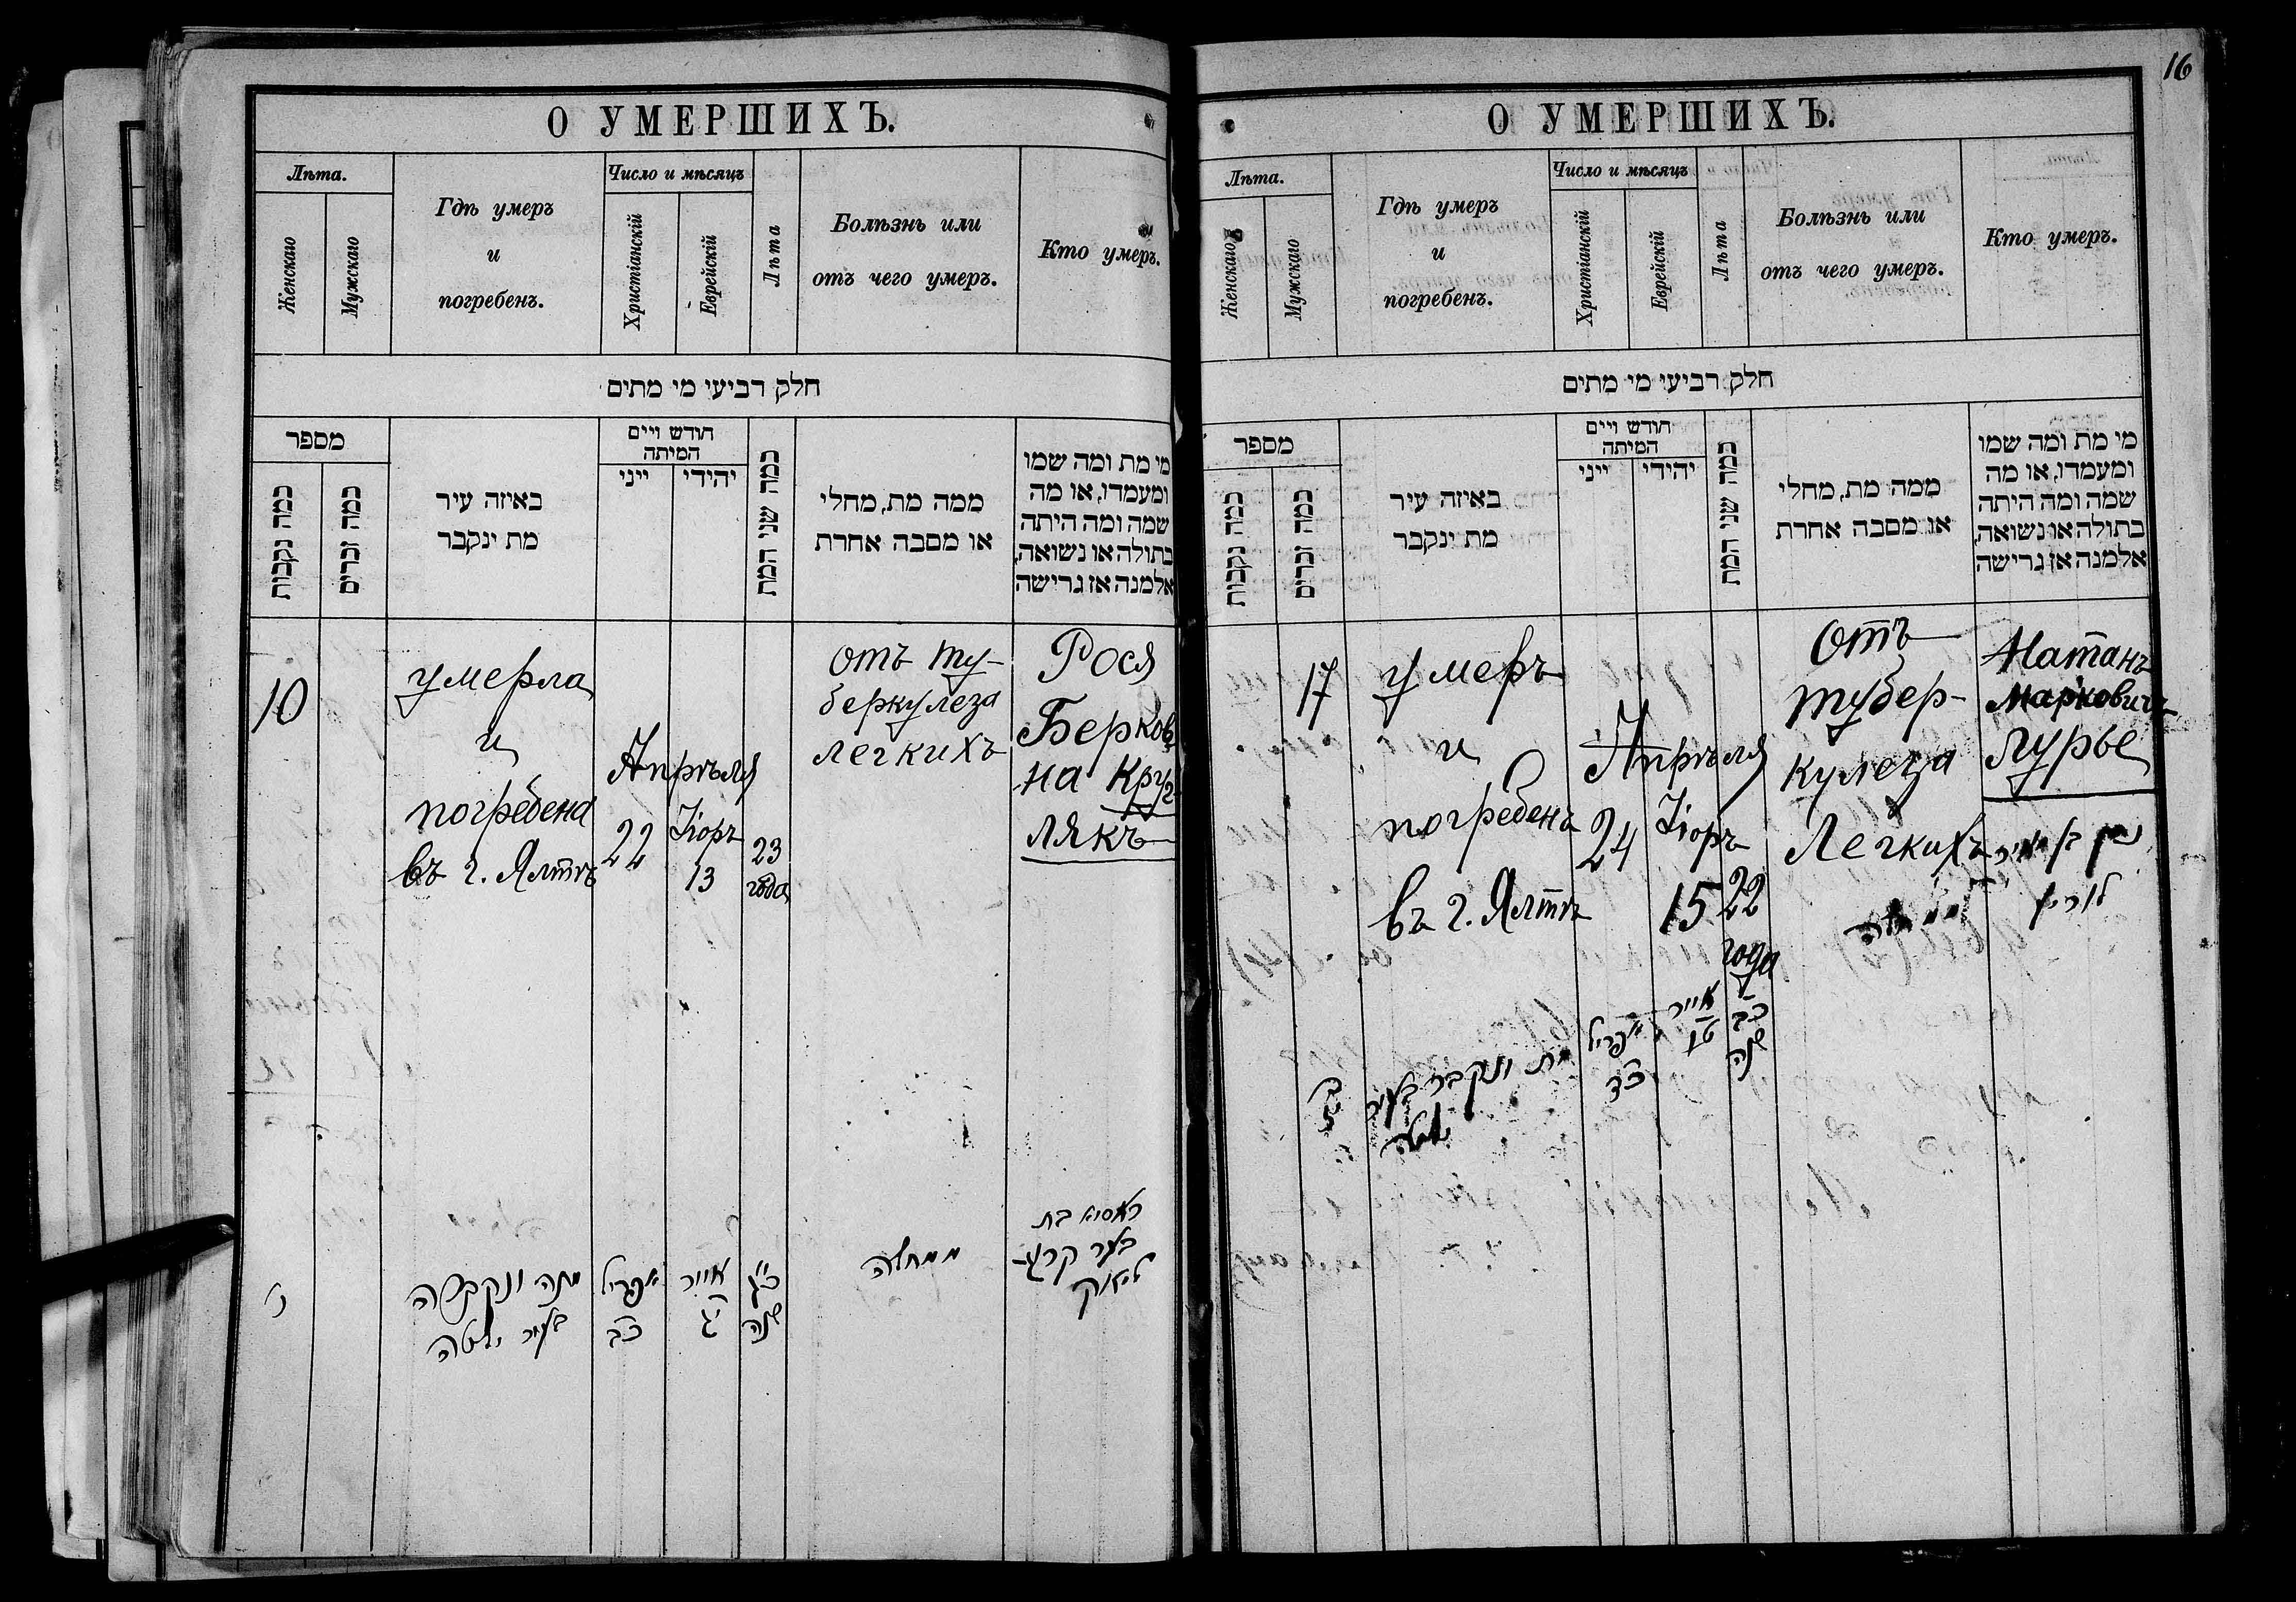 О УМЕРШИХЪ.
Лѣта.
Женскаго
Мужскаго
Гдѣ умеръ
и
погребенъ.
Число и мѣсяцъ
Христіанскій
Еврейскій
Лѣта
Болѣзнь или
отъ чего умеръ.
Кто умеръ.
חלק רביעי מי מתים
מספר
כמה נקבות
כמה זכרים
באיזה עיר
מת ינקבר
חודש ויים
המיתה
ייני
יהידי
כמה שני המת
ממה מת, מחלי
או מסבה אחרת
מי מת ומה שמו
ומעמדו, או מה
שמה ומה היתה
בתולה או נשואה,
אלמנה אז גרישה
10
умерла
и
погребена
въ г. Ялтѣ
Апрѣля
22
Іюръ
13
23
года
отъ ту-
беркулеза
легкихъ
Рося
Берков
на Круг-
лякъ
מתה ונקברה
בעיר יאלטה
אפריל
כב
אייר
יג
כג
שנה
ממחלה
ראסיא בת
בער קרוג-
ליאק
16
О УМЕРШИХЪ.
Лѣта.
Женскаго
Мужскаго
Гдѣ умеръ
и
погребенъ.
Число и мѣсяцъ
Христіанскій
Еврейскій
Лѣта
Болѣзнь или
отъ чего умеръ.
Кто умеръ.
חלק רביעי מי מתים
מספר
כמה נקבות
כמה זכרים
באיזה עיר
מת ינקבר
חודש ויים
המיתה
ייני
יהידי
כמה שני המת
ממה מת, מחלי
או מסבה אחרת
מי מת ומה שמו
ומעמדו, או מה
שמה ומה היתה
בתולה או נשואה,
אלמנה אז גרישה
17
умеръ
и
погребенъ
въ г. Ялтѣ
Апрѣля
24
Іюръ
15
22
года
Отъ
тубер-
кулеза
Легкихъ
Натанъ
Марковичъ
Лурье
נתן בן מאיר
לוריא
ממחלה
מת ונקבר בעיר
יאלטה
אפריל
כד
אייר
טו
כב
שנה